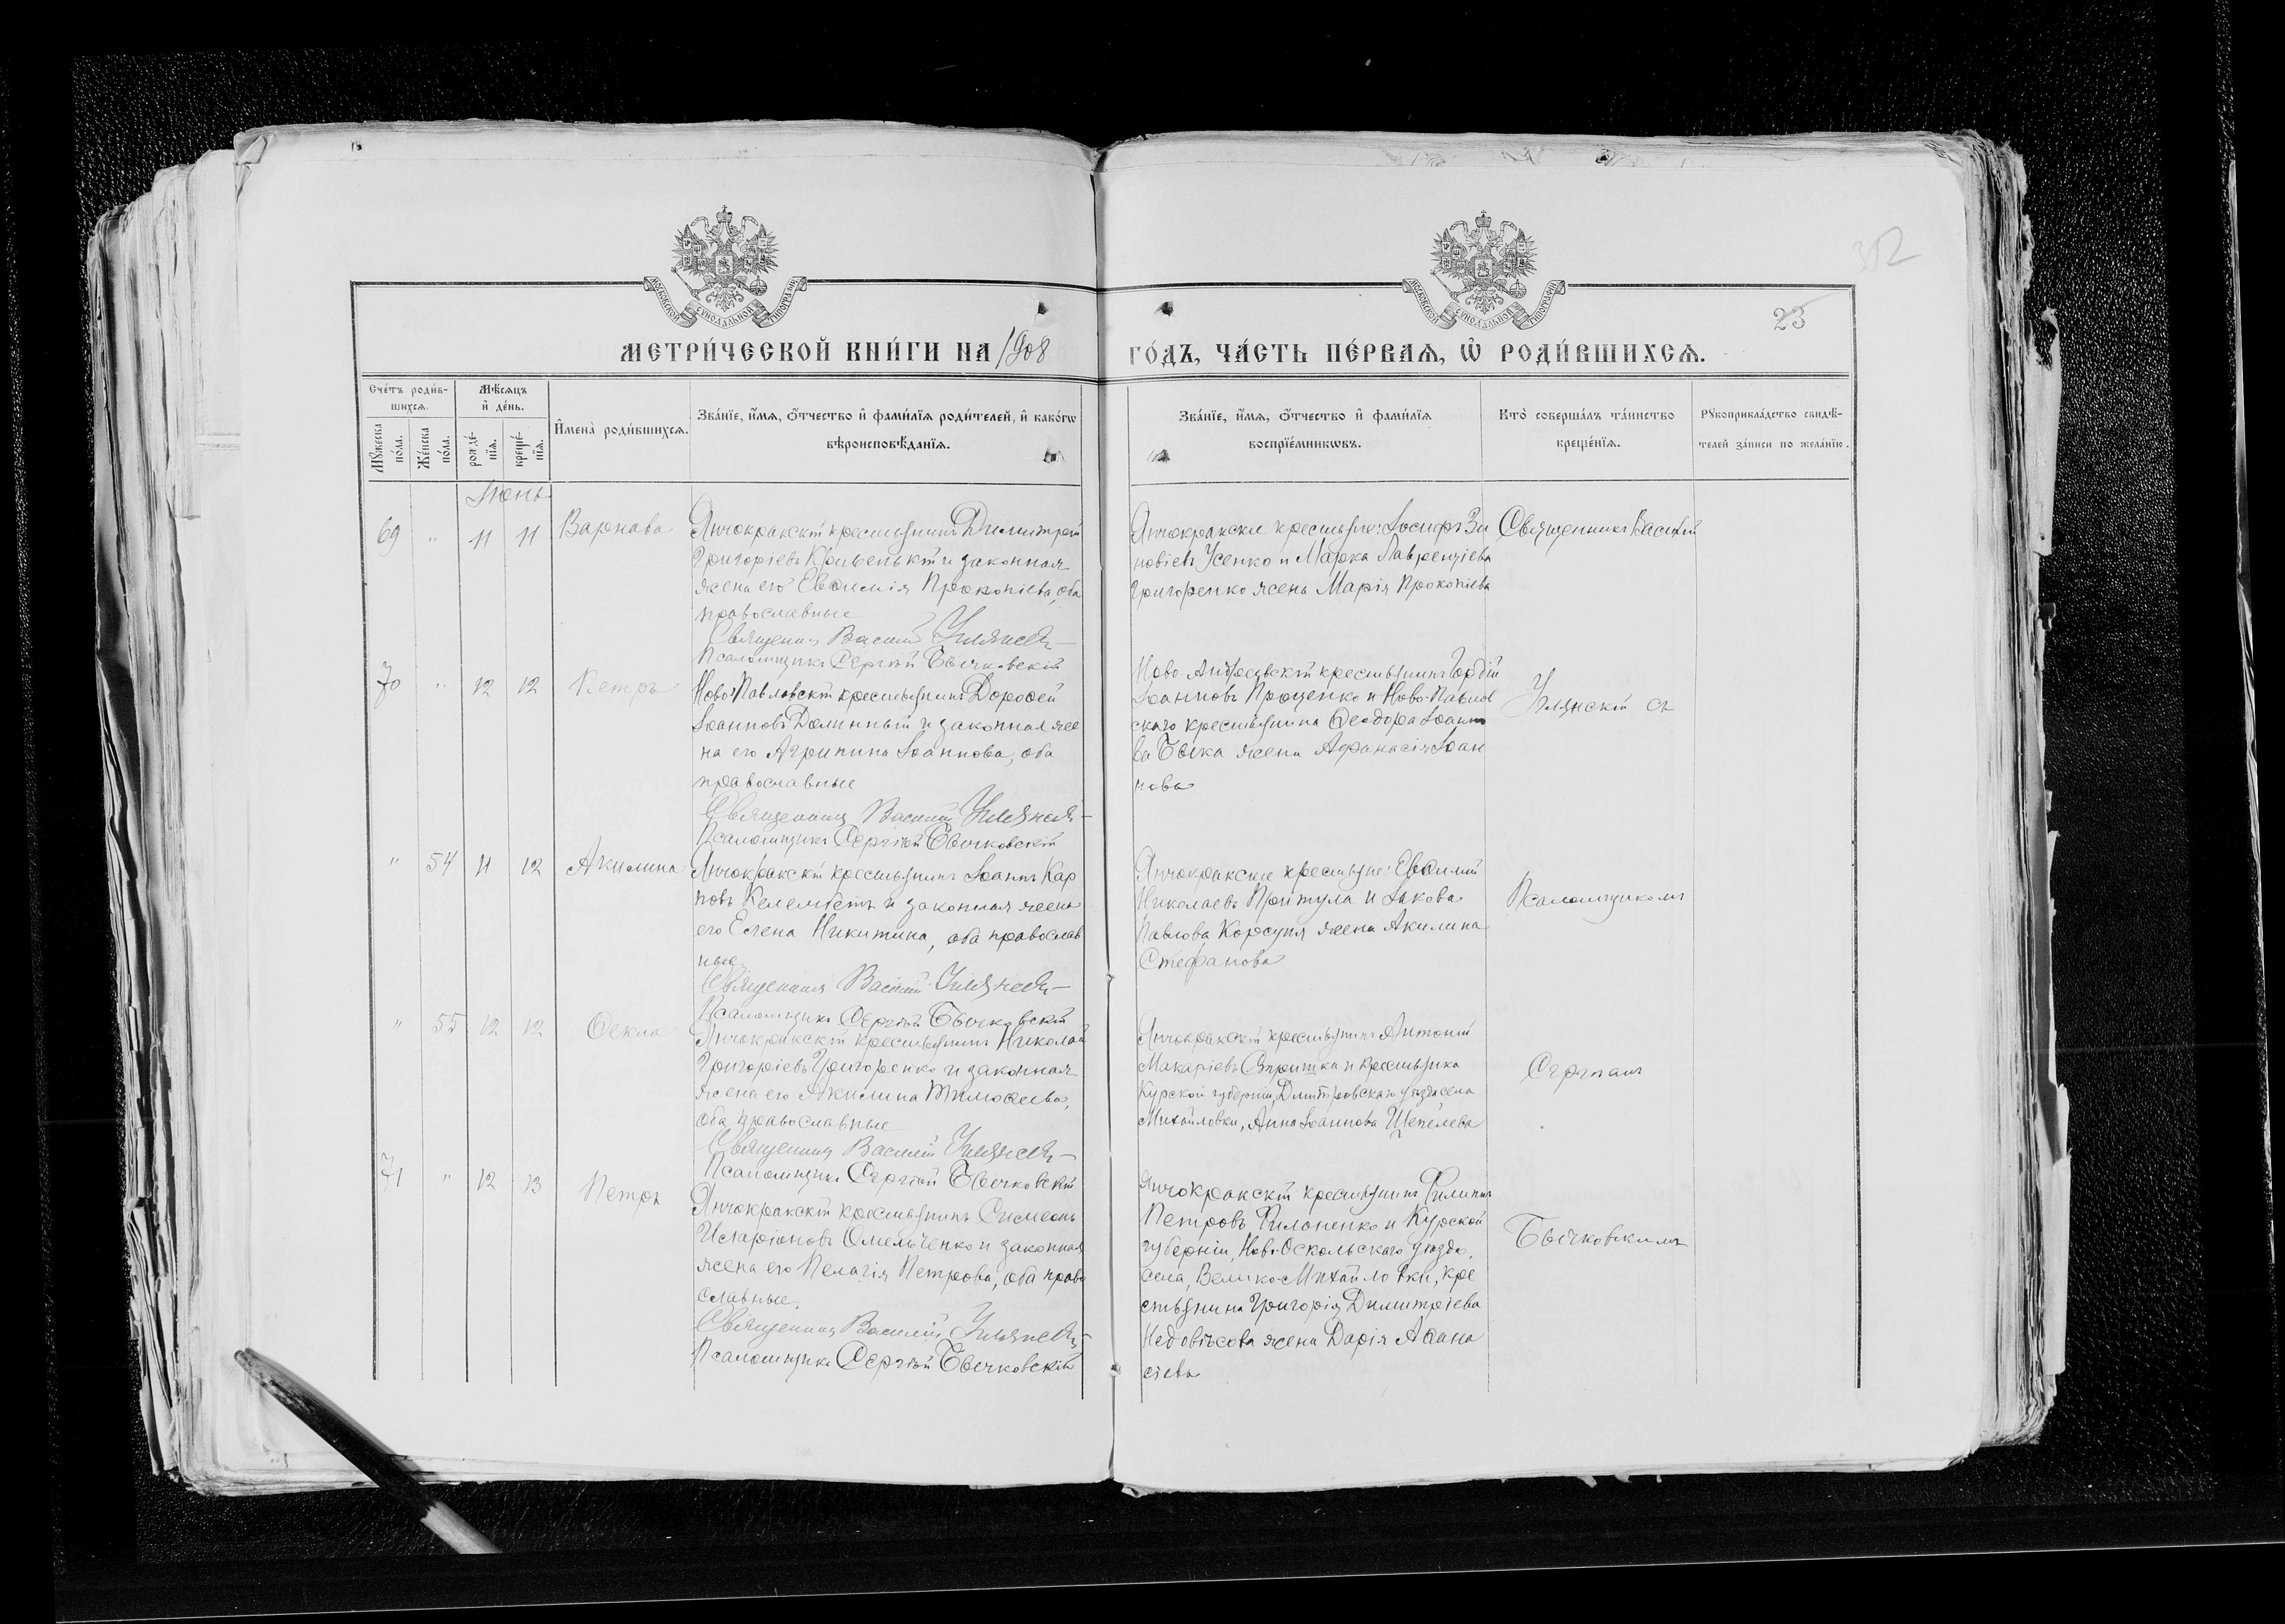 352
МОСКОВСКОЙ СѴНОДАЛЬНОЙ ТИПОГРАФІИ
МОСКОВСКОЙ СѴНОДАЛЬНОЙ ТИПОГРАФІИ
23
МЕТРИ́ЧЕСКОЙ КНИ́ГИ НА 1908
ГО́ДЪ, ЧА́СТЬ ПЕ́РВАѦ, Ѡ҆ РОДИ́ВШИХСѦ.
Сче́тъ роди́в-
шихсѧ.
Мꙋ́жеска по́ла.
Же́нска по́ла.
Мѣ́сѧцъ
и҆ де́нь.
рожде́-нїѧ.
креще́-нїѧ.
И҆мена̀ роди́вшихсѧ.
Зва́нїе, и҆́мѧ, ѻ҆́тчество и҆ фами́лїѧ роди́телей, и҆ како́гѡ
вѣроисповѣ́данїѧ.
Зва́нїе, и҆́мѧ, ѻ҆́тчество и҆ фами́лїѧ
воспрїе́мникѡвъ.
Кто̀ соверша́лъ та́инство
креще́нїѧ.
Рꙋкоприкла́дство свидѣ́-
телей за́писи по жела́нїю.
Іюнь
69 " 11 11 Варнава
Янчокракскій крестьянинъ Димитрій
Григоріевъ Кривенькій и законная
жена его Евѳимія Прокопіева, оба
православные
Священникъ Василій
Псаломщикъ Сергій Бычковскій
Янчокракскіе крестьяне: Іосифъ Зи
новіевъ Усенко и Марка Лаврентіева
Григоренко жена Марія Прокопіева
Священникъ Василій
70 " 12 12 Петръ
Ново-Павловскій крестьянинъ Дороѳей
Іоанновъ Долинный и законная же
на его Агрипина Іоаннова, оба
православные
Священникъ Василій
Псаломщикъ Сергій Бычковскій
крестьянинъ Гордій
Іоанновъ Проценко и Ново-Павлов
скаго крестьянина Ѳеодора Іоанно
ва Быка жена Афанасія Іоан
нова
съ
" 54 11 12 Акилина
Янчокракскій крестьянинъ Іоаннъ Кар
повъ и законная жена
его Елена Никитина, оба православ
ные.
Священникъ Василій
Псаломщикъ Сергій Бычковскій
Янчокракскіе крестьяне: Евѳимій
Николаевъ Притула и Іакова
Павлова Корсуня жена Акилина
Стефанова
Псаломщикомъ
" 55 12 12 Ѳекла
Янчокракскій крестьянинъ Николай
Григоріевъ Григоренко и законная
жена его Акилина Тимоѳеева,
оба православные
Священникъ Василій
Псаломщикъ Сергій Бычковскій
Янчокракскій крестьянинъ Антоній
Макаріевъ и крестьянка
Курской губерніи, Дмитровскаго уѣзда села
Михайловки, Анна Іоаннова Шепелева
Сергіемъ
71 " 12 13 Петръ
Янчокракскій крестьянинъ Симеонъ
Иларіоновъ Омельченко и законная
жена его Пелагія Петрова, оба право
славные.
Священникъ Василій
Псаломщикъ Сергій Бычковскій
Янчокракскій крестьянинъ Филиппъ
Петровъ Филоненко и Курской
губерніи, Ново-Оскольскаго уѣзда,
села, Велико-Михайловки, кре
стьянина Григорія Димитріева
Недовѣсова жена Дарія Аѳана
сіева
Бычковскимъ